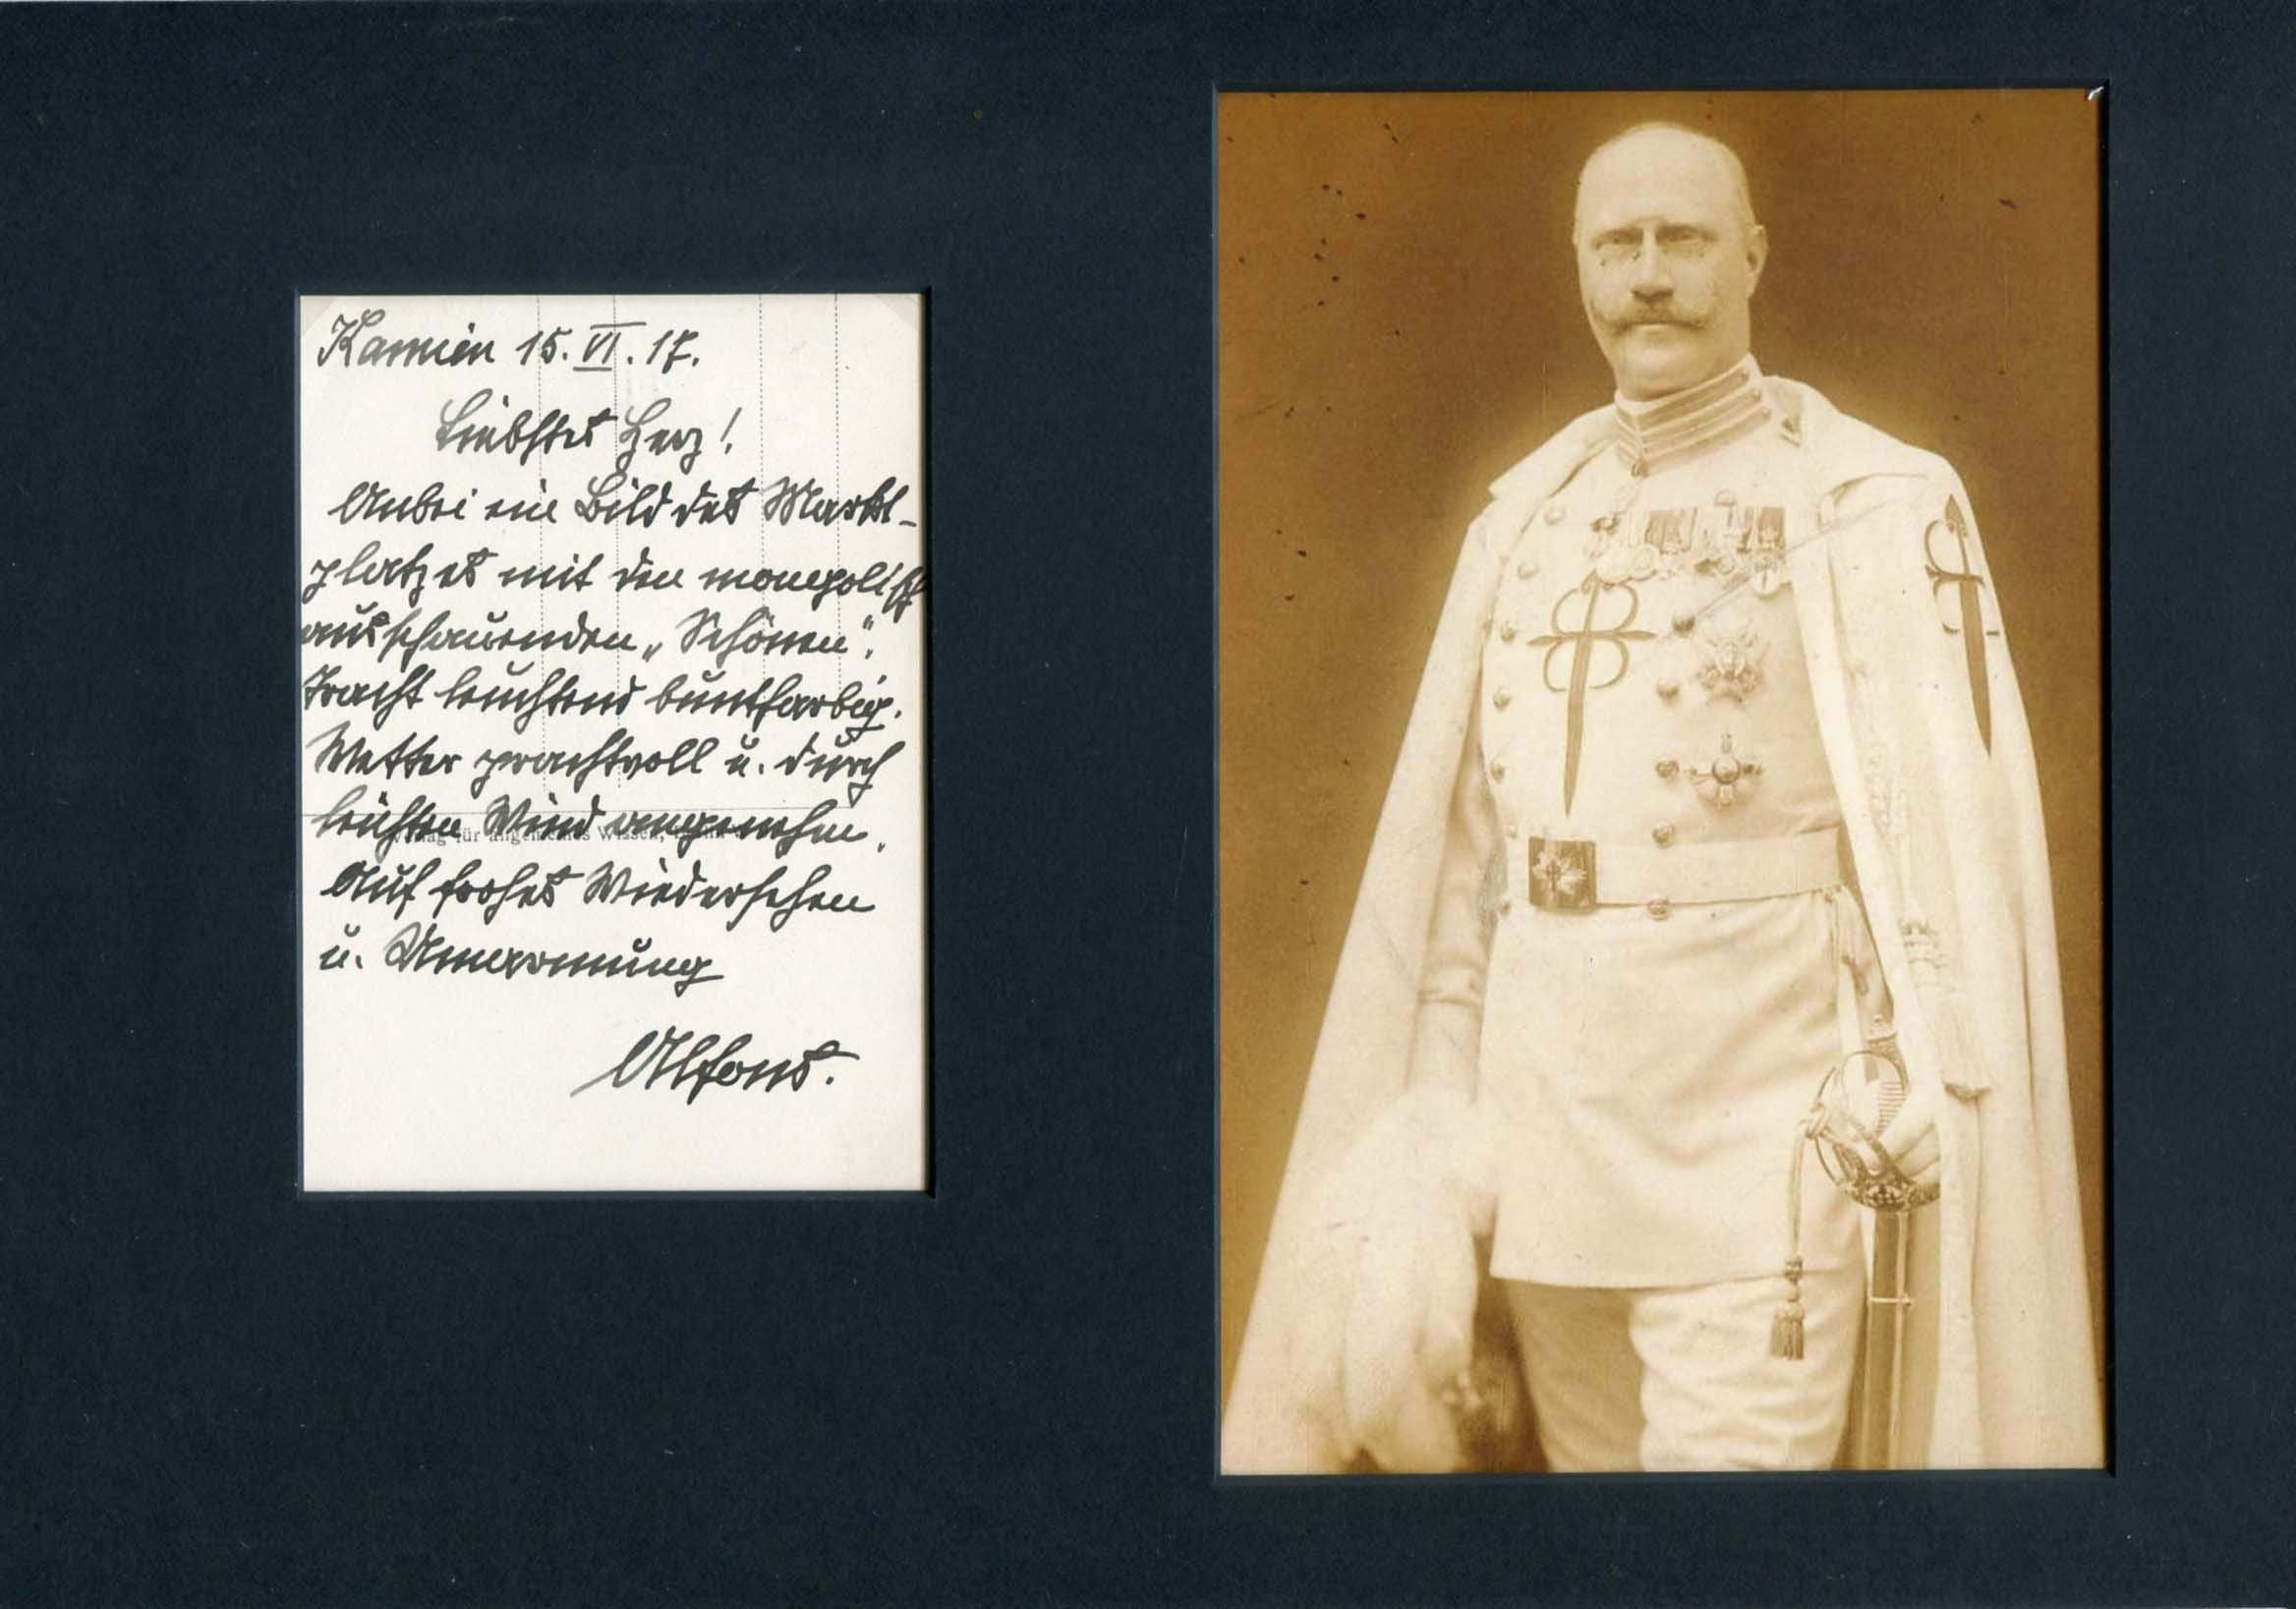 Kamień 15.VI.17.
Liebstes Herz!
Anbei ein Bild des Markt-
platzes mit den mongolisch
ausschauenden „Schönen".
Tracht leuchtend buntfarbig.
Wetter prachtvoll u. durch
leichten Wind angenehm.
Verlag für allgemeines Wissen,
Auf frohes Wiedersehen
u. Umarmung
Alfons.